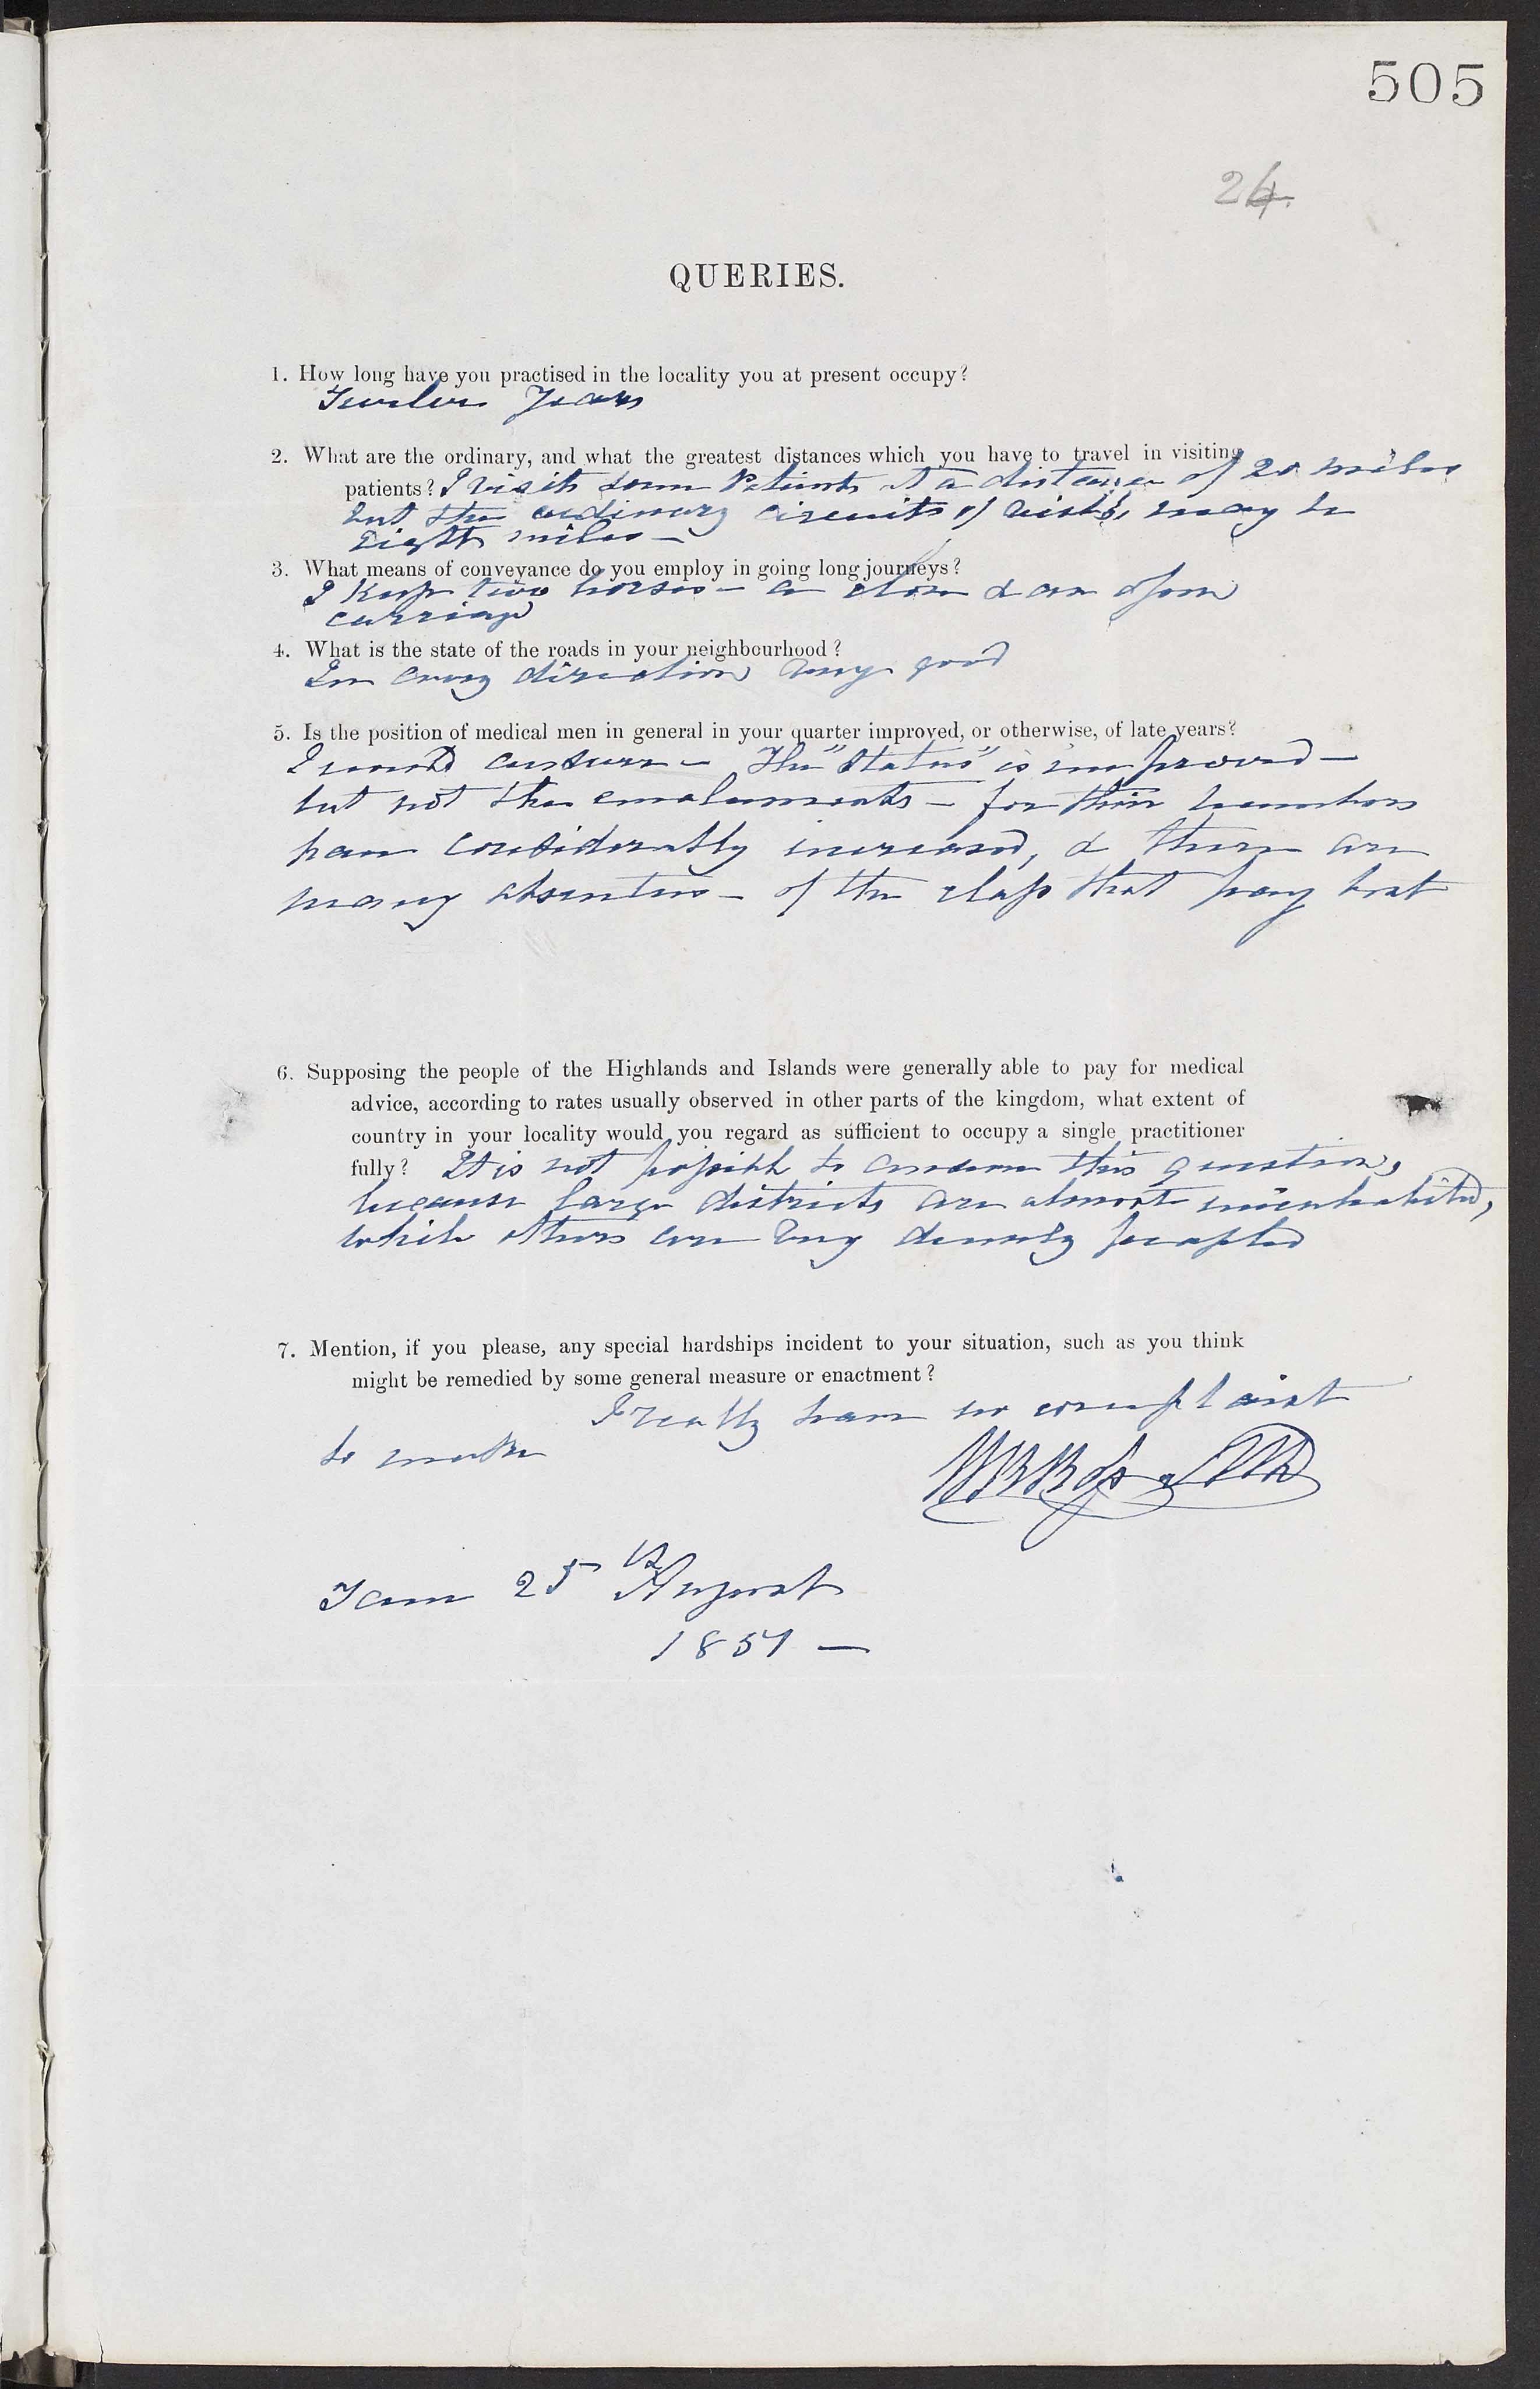 505
24.
QUERIES.
1. How long have you practised in the locality you at present occupy?
Twelve Years
2. What are the ordinary, and what the greatest distances which you have to travel in visiting
patients? I visit some Patients at a distance of 20 miles
but the ordinary circuits of visits, may be
Eight miles —
3. What means of conveyance do you employ in going long journeys?
I Keep two horses — a close & an open
carriage
4. What is the state of the roads in your neighbourhood?
In every direction very good
5. Is the position of medical men in general in your quarter improved, or otherwise, of late years?
I would answer — The "Status" is improved —
but not the emoluments — for their numbers
have considerably increased, & there are
many absentees — of the class that pay best
6. Supposing the people of the Highlands and Islands were generally able to pay for medical
advice, according to rates usually observed in other parts of the kingdom, what extent of
country in your locality would you regard as sufficient to occupy a single practitioner
fully? It is not possible to answer this question,
because large districts are almost uninhabited,
while others are very densely peopled
7. Mention, if you please, any special hardships incident to your situation, such as you think
might be remedied by some general measure or enactment?
I really have no complaint
to make
25th August
1851 —